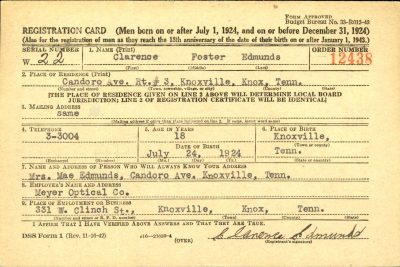 Form Approved
Budget Bureau No. 33-R012-42
REGISTRATION CARD (Men born on or after July 1, 1924, and on or before December 31, 1924)
(Also for the registration of men as they reach the 18th anniversary of the date of their birth on or after January 1, 1943.)
SERIAL NUMBER 1. NAME (Print) ORDER NUMBER
W- 22 Clarence Foster Edmunds 12438
(First) (Middle) (Last)
2. PLACE OF RESIDENCE (Print)
Candoro Ave. Rt.# 3, Knoxville, Knox, Tenn.
(Number and street) (Town, township, village, or city) (County) (State)
[THE PLACE OF RESIDENCE GIVEN ON LINE 2 ABOVE WILL DETERMINE LOCAL BOARD
JURISDICTION; LINE 2 OF REGISTRATION CERTIFICATE WILL BE IDENTICAL]
3. MAILING ADDRESS
same
(Mailing address if other than place indicated on line 2. If same, insert word same)
4. TELEPHONE 5. AGE IN YEARS 6. PLACE OF BIRTH
3-3004 18 Knoxville,
DATE OF BIRTH (Town or county)
July 24, 1924 Tenn.
(Exchange) (Number) (Mo.) (Day) (Yr.) (State or country)
7. NAME AND ADDRESS OF PERSON WHO WILL ALWAYS KNOW YOUR ADDRESS
Mrs. Mae Edmunds, Candoro Ave, Knoxville, Tenn.
8. EMPLOYER'S NAME AND ADDRESS
Meyer Optical Co.
9. PLACE OF EMPLOYMENT OR BUSINESS
331 W. Clinch St., Knoxville, Knox, Tenn.
(Number and street or R. F. D. number) (Town) (County) (State)
I AFFIRM THAT I HAVE VERIFIED ABOVE ANSWERS AND THAT THEY ARE TRUE.
DSS Form 1 (Rev. 11-16-42)
(OVER) (Registrant's signature)